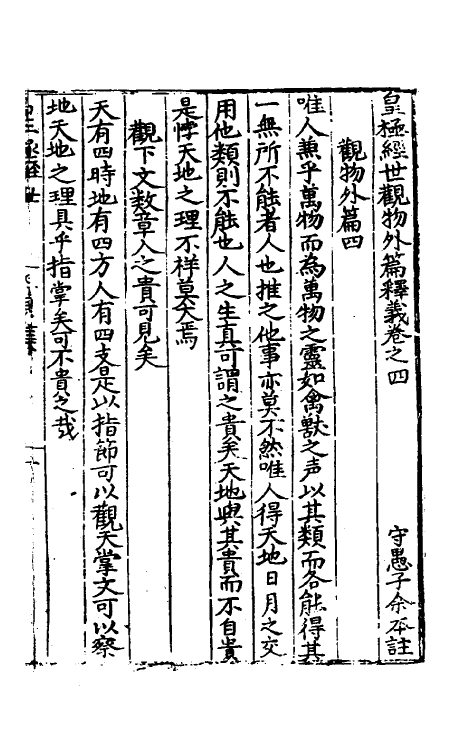 皇極經世觀物外篇釋義卷之四
守愚子余本註
觀物外篇四
唯人兼乎萬物而為萬物之靈如禽獸之声以其類而各能得其
一無所不能者人也推之他事亦莫不然唯人得天地日月之交
用他類則不能也人之生真可謂之貴矣天地與其貴而不自貴
是悖天地之理不祥莫大焉
觀下文数章人之貴可見矣
天有四時地有四方人有四支是以指節可以觀天掌文可以察
地天地之理具乎指掌矣可不貴之哉